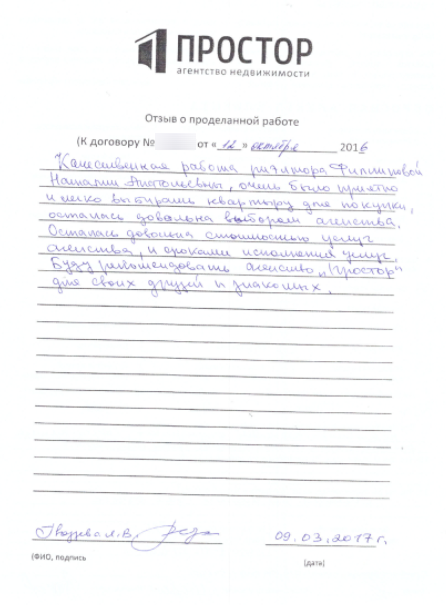 ПРОСТОР
агентство недвижимости
Отзыв о проделанной работе
(К договору № от «12» октября 2016
Качественная работа риэлтора Филипповой
Наталии Анатольевны, очень было приятно
и легко выбирать квартиру для покупки,
осталась довольна выбором агенства.
Осталась довольна стоимостью услуг
агенства, и сроками исполнения услуг.
Буду рекомендовать агенство „Простор"
для своих друзей и знакомых.
Л.В.
09.03.2017г.
(ФИО, подпись
(дата)